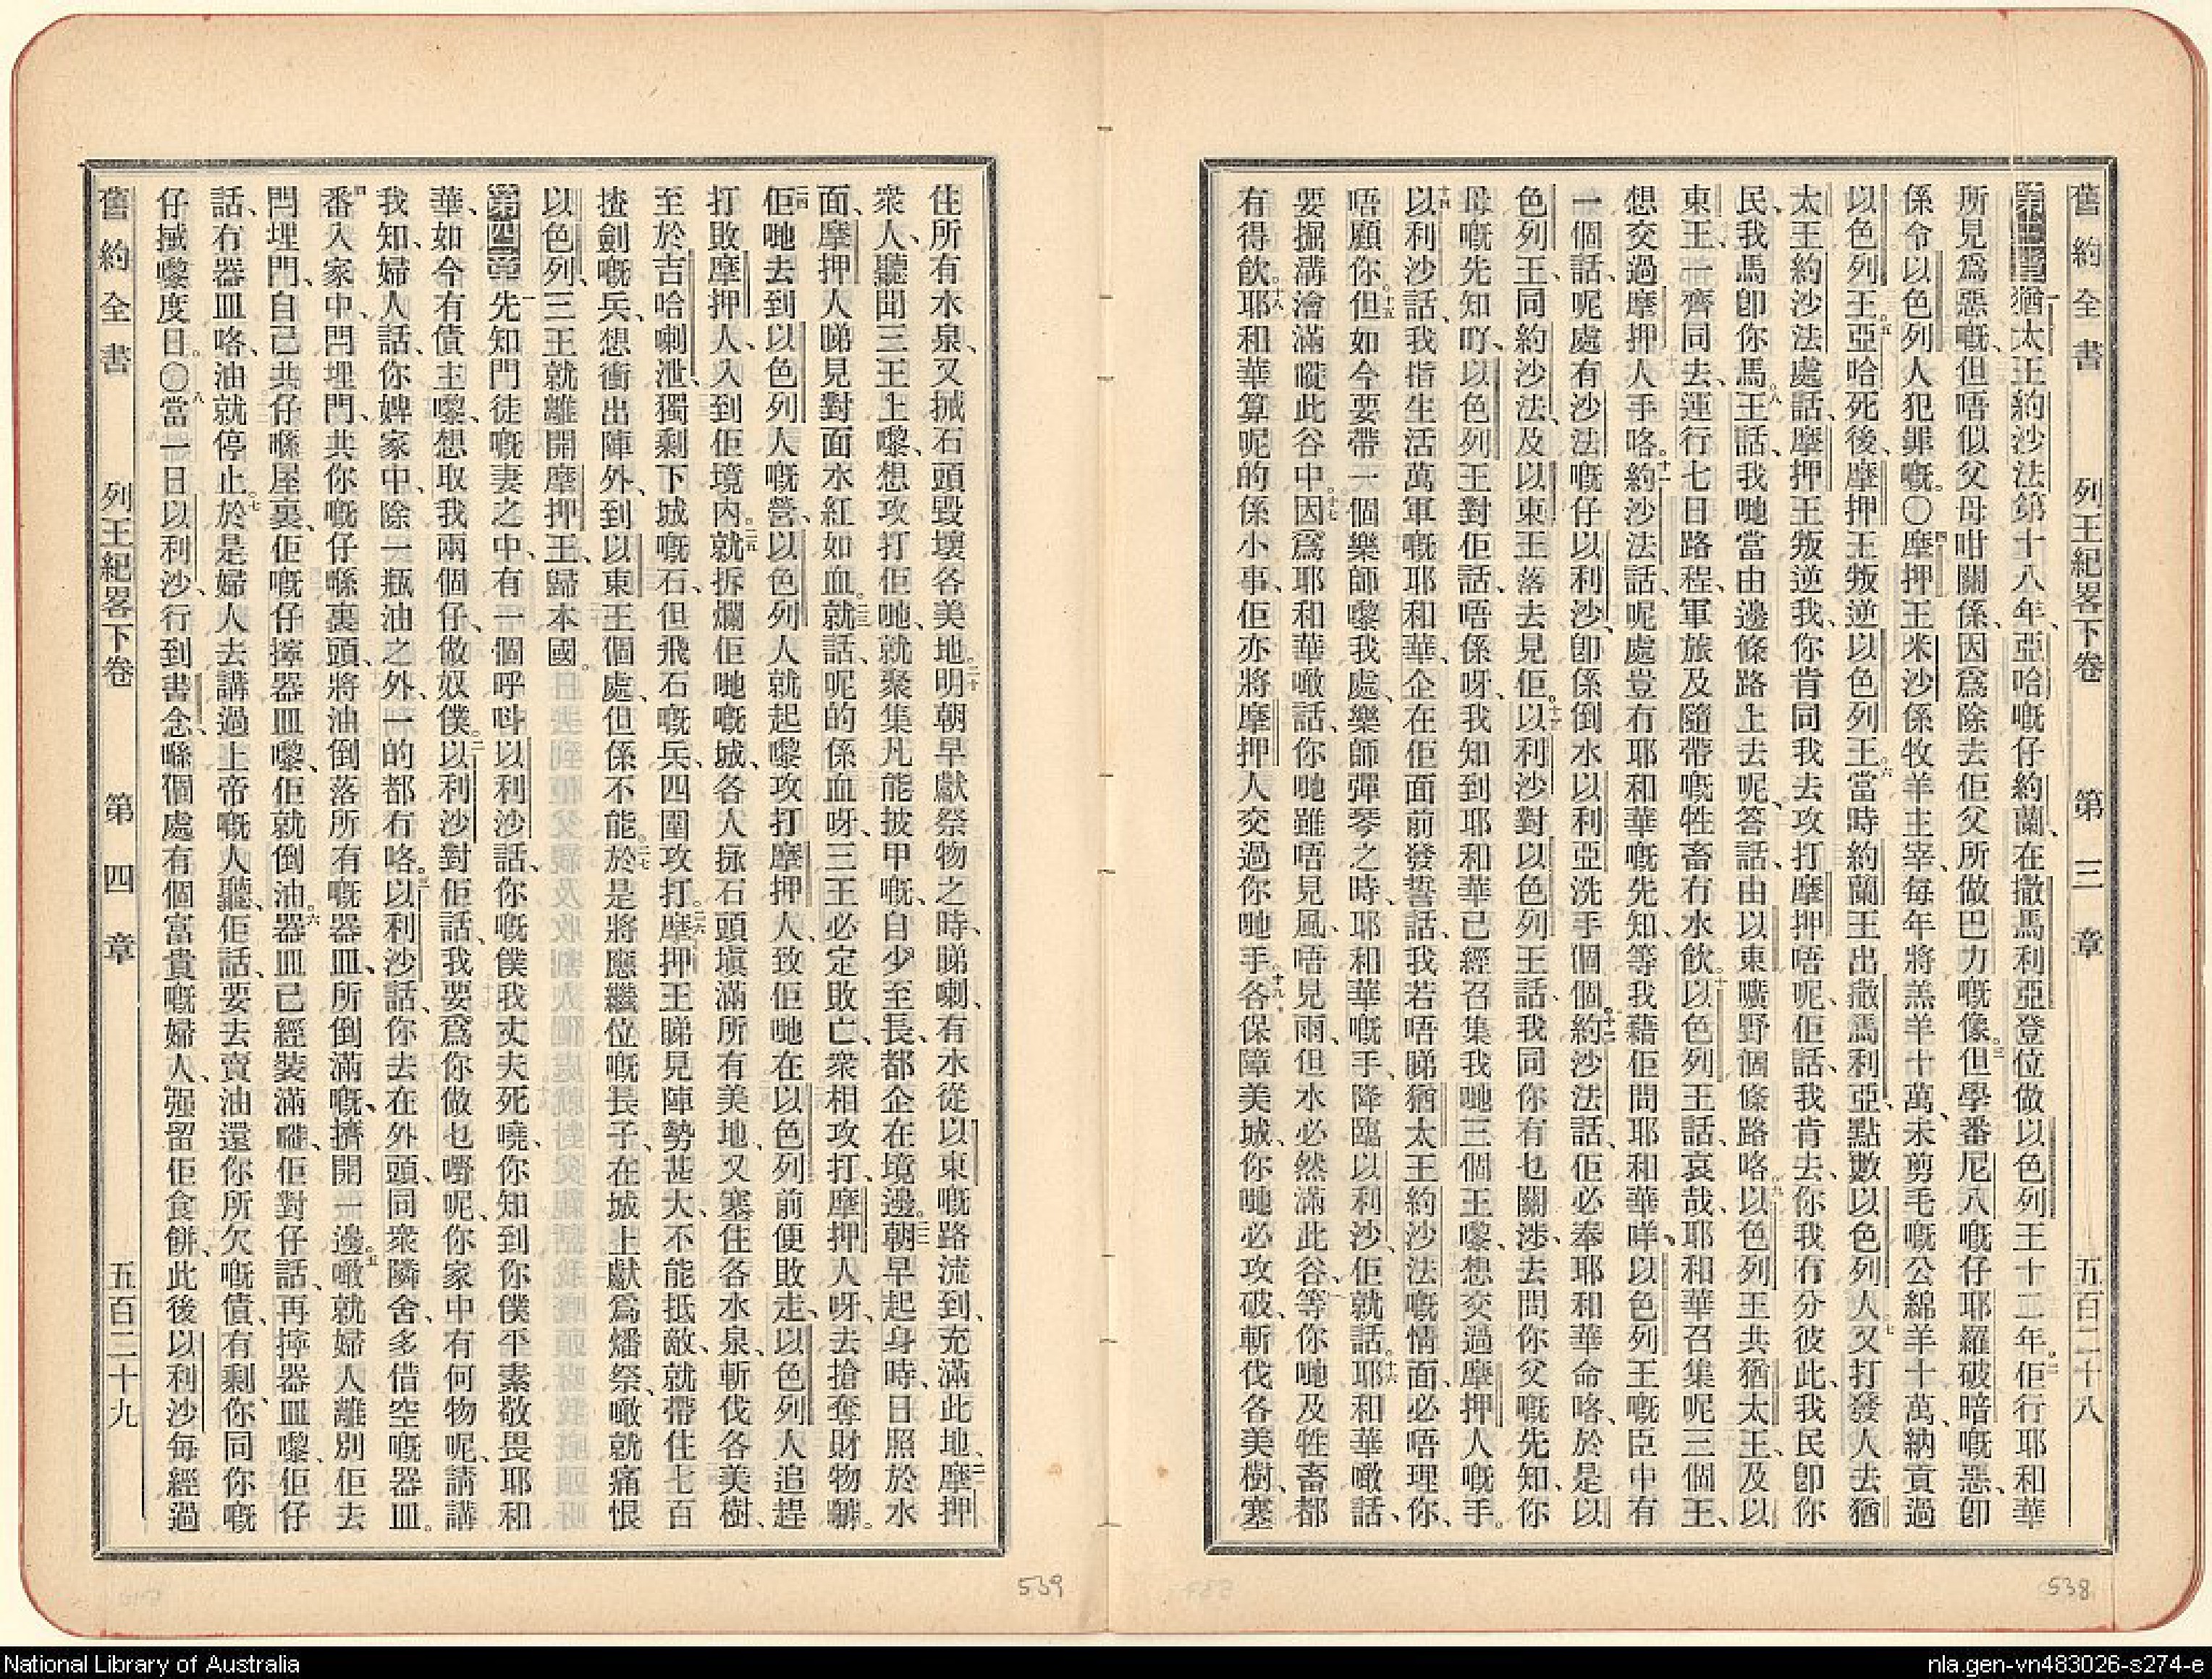 舊約全書 列王紀畧下卷 第三章 五百二十八
第三章一猶太王約沙法第十八年、亞哈嘅仔約蘭、在撒馬利亞登位做以色列王十二年。二佢行耶和華
所見爲惡嘅、但唔似父母咁關係、因爲除去佢父所做巴力嘅像。三但學番尼八嘅仔耶羅破暗嘅惡、卽
係令以色列人犯罪嘅。〇四摩押王米沙係牧羊主宰、每年將羔羊十萬、未剪毛嘅公綿羊十萬、納貢過
以色列王。五亞哈死後、摩押王叛逆以色列王。六當時約蘭王出撒馬利亞、點數以色列人。七又打發人去猶
太王約沙法處話、摩押王叛逆我、你肯同我去攻打摩押唔呢、佢話、我肯去、你我冇分彼此、我民卽你
民、我馬卽你馬。八王話、我哋當由邊條路上去呢、答話、由以東曠野個條路咯。九以色列王共猶太王、及以
東王、一齊同去、運行七日路程、軍旅及隨帶嘅牲畜冇水飲。十以色列王話、哀哉、耶和華召集呢三個王、
想交過摩押人手咯。十一約沙法話、呢處豈冇耶和華嘅先知、等我藉佢問耶和華咩。以色列王嘅臣中有
一個話、呢處有沙法嘅仔以利沙、卽係倒水以利亞洗手個個。十二約沙法話、佢必奉耶和華命咯、於是以
色列王、同約沙法、及以東王落去見佢。十三以利沙對以色列王話、我同你有乜關涉、去問你父嘅先知、你
母嘅先知吖、以色列王對佢話、唔係呀、我知到耶和華已經召集我哋三個王嚟、想交過摩押人嘅手。
十四以利沙話、我指生活萬軍嘅耶和華、企在佢面前發誓話、我若唔睇猶太王約沙法嘅情面、必唔理你、
唔顧你。十五但如今要帶一個樂師嚟我處、樂師彈琴之時、耶和華嘅手、降臨以利沙、佢就話。十六耶和華噉話、
要掘溝澮滿嘥此谷中。十七因爲耶和華噉話、你哋雖唔見風、唔見雨、但水必然滿此谷、等你哋及牲畜都
有得飲。十八耶和華算呢的係小事、佢亦將摩押人交過你哋手。十九各保障美城、你哋必攻破、斬伐各美樹、塞
住所有水泉、又掝石頭毀壞各美地。二十明朝早獻祭物之時、睇喇、有水從以東嘅路流到、充滿此地、二一摩押
衆人、聽聞三王上嚟、想攻打佢哋、就聚集凡能披甲嘅、自少至長、都企在境邊。二二朝早起身時、日照於水
面、摩押人睇見對面水紅如血。二三就話、呢的係血呀、三王必定敗亡、衆相攻打、摩押人呀、去搶奪財物嚹。
二四佢哋去到以色列人嘅營、以色列人就起嚟攻打摩押人、致佢哋在以色列前便敗走、以色列人追趕
打敗摩押人、入到佢境內。二五就拆爛佢哋嘅城、各人拯石頭塡滿所有美地、又塞住各水泉、斬伐各美樹、
至於吉哈喇泄、獨剩下城嘅石、但飛石嘅兵、四圍攻打。二六摩押王睇見陣勢甚大、不能抵敵、就帶住七百
揸劍嘅兵、想衝出陣外、到以東王個處、但係不能。二七於是將應繼位嘅長子、在城上獻爲燔祭、噉就痛恨
以色列、三王就離開摩押王、歸本國。
第四章一先知門徒嘅妻之中、有一個呼呌以利沙話、你嘅僕我丈夫死嘵、你知到你僕平素敬畏耶和
華、如今有債主嚟、想取我兩個仔、做奴僕。二以利沙對佢話、我要爲你做乜嘢呢、你家中有何物呢、請講
我知、婦人話、你婢家中、除一瓶油之外、一的都冇咯。三以利沙話、你去在外頭、同衆隣舍、多借空嘅器皿。
四番入家中、閂埋門、共你嘅仔喺裏頭、將油倒落所有嘅器皿、所倒滿嘅、擠開一邊。五噉就婦人離別佢去
閂埋門、自己共仔喺屋裏、佢嘅仔擰器皿嚟、佢就倒油。六器皿已經裝滿嘥、佢對仔話、再擰器皿嚟、佢仔
話、冇器皿咯、油就停止。七於是婦人去講過上帝嘅人聽、佢話、要去賣油還你所欠嘅債、有剩、你同你嘅
仔搣嚟度日。〇八當一日、以利沙行到書念、喺個處有個富貴嘅婦人、强留佢食餅、此後以利沙每經過
舊約全書 列王紀畧下卷 第四章 五百二十九
539
538
National Library of Australia
nla.gen-vn483026-s274-e